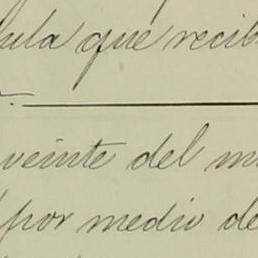 ula que recib
veinte del m
por medio de